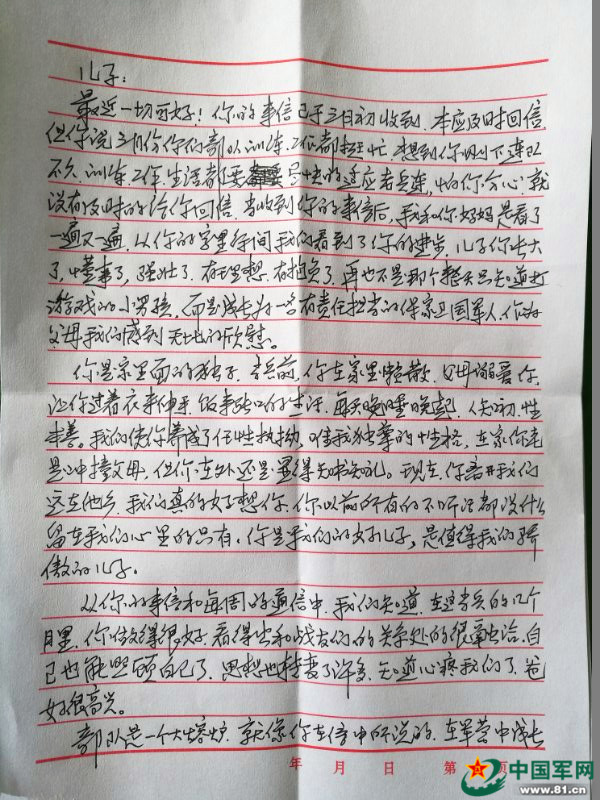 儿子：
最近一切可好！你的来信已于三月初收到，本应及时回信
但你说三月份你们部队训练、工作都挺忙，想到你刚下连队
不久，训练、工作、生活都要尽快的适应者连，怕你分心就
没有及时的给你回信，当收到你的来信后，我和你妈妈是看了
一遍又一遍，从你的字里行间我们看到了你的进步，儿子你长大
了，懂事了，强壮了，有理想，有抱负了，再也不是那个整天只知道打
游戏的小男孩，而是成长为一名有责任担当的保家卫国军人，作为
父母我们感到无比的欣慰。
你是家里面的独子，当兵前，你在家里懒散，父母溺爱你，
让你过着衣来伸手，饭来张口的生活，每天晚睡晚起，人知初，性
本善。我们使你养成了任性执拗，唯我独尊的性格，在家你老
是冲撞父母，但你在外还是显得知书知礼。现在，你离开我们
远在他乡，我们真的好想你，你以前所有的不听话都没什么
留在我们心里的只有，你是我们的好儿子，是值得我们骄
傲的儿子。
从你的来信和每周的通信中，我们知道，在这当兵的几个
月里，你做得很好，看得出和战友们的关系处的很融洽，自
己也能照顾自己了，思想也转变了许多，知道心疼我们了，爸
妈很高兴。
部队是一个大熔炉，就像你在信中所说的，在军营中成长
年 月 日 第 页
中国军网
www.81.cn